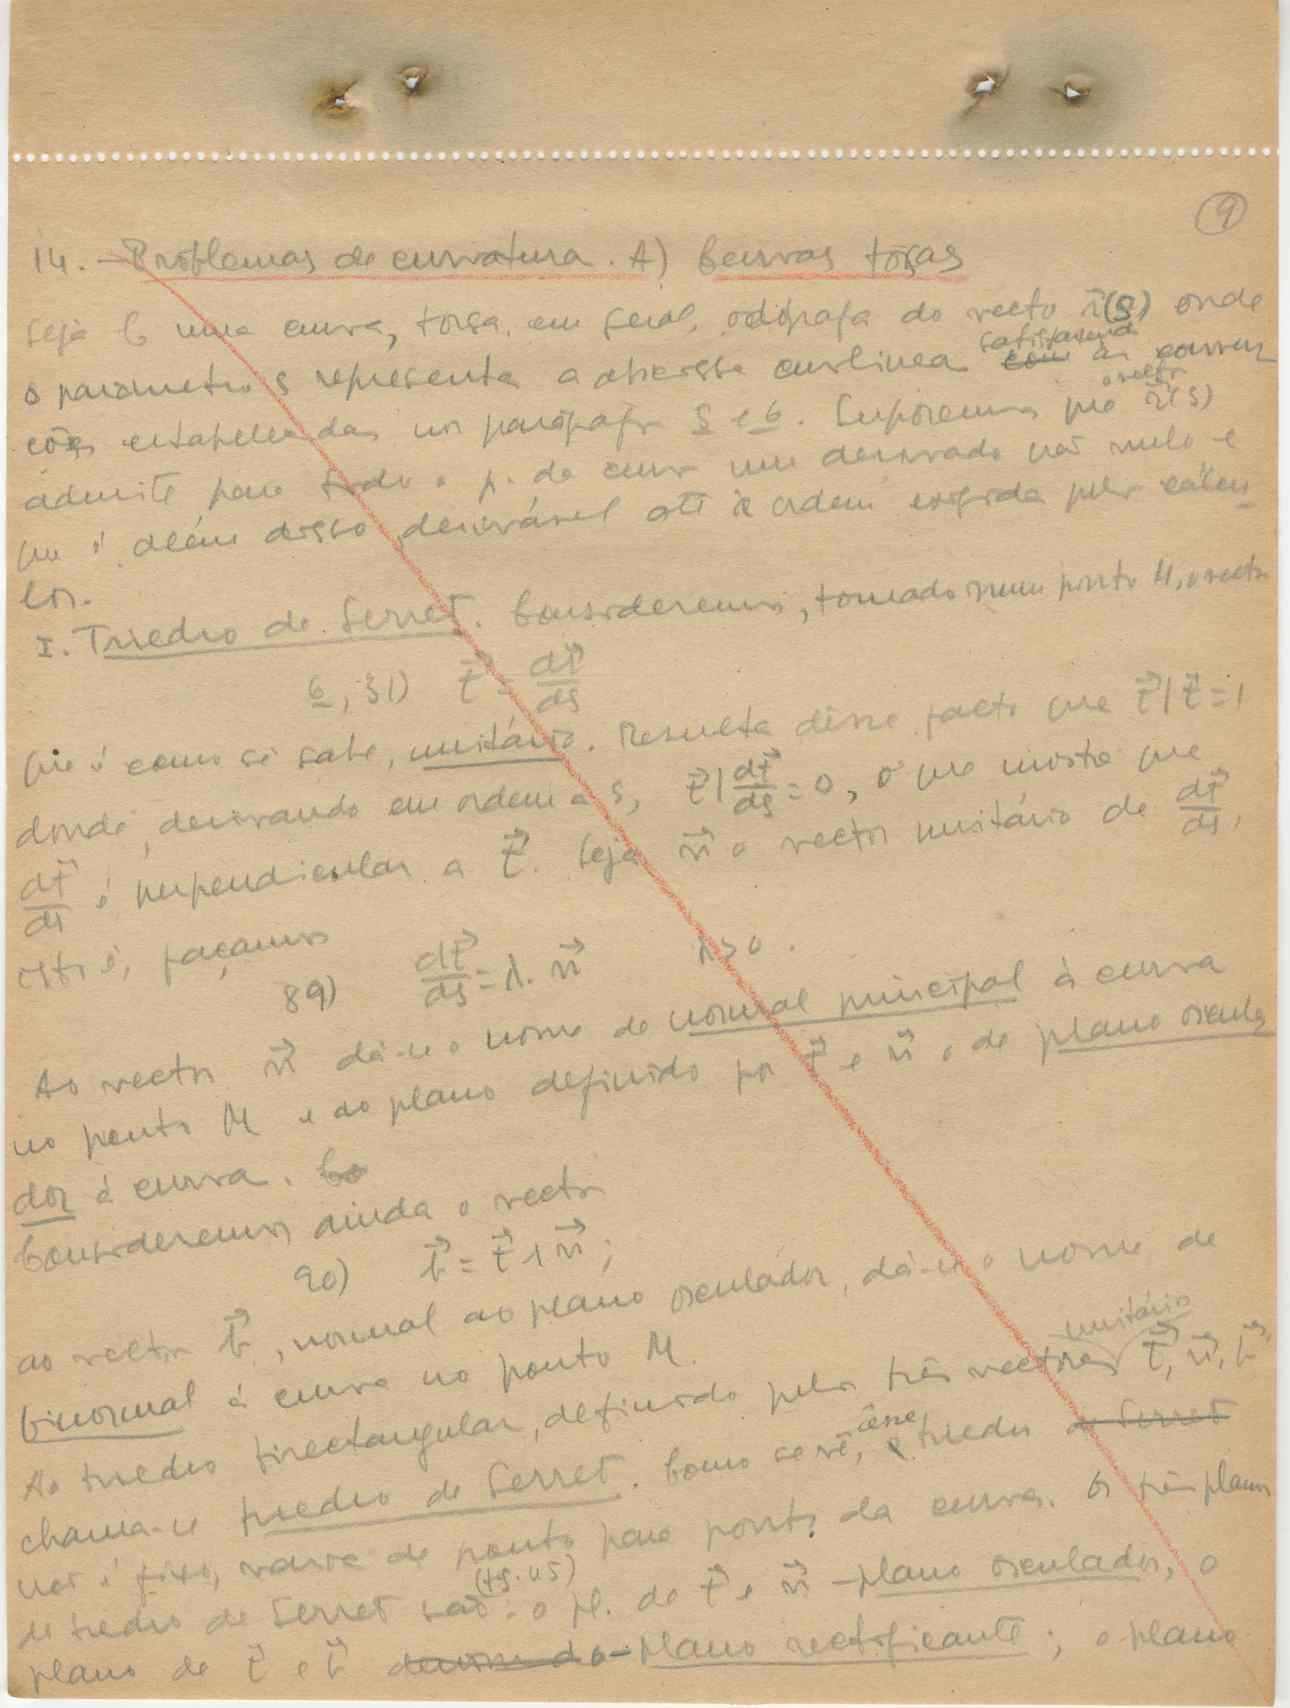 9
14. - Problemas de curvatura. A) Curvas torsas
Seja C uma curva, torsa, em geral, odógrafa do vector r⃗(s) onde
o parametro s representa a abcissa curvilinea satisfazendo com às conven
ções estabelecidas nos parágrafos 5 e 6. Suporemos que o vector r⃗(s)
admite para todo o p. da curva uma derivada não nula e
que é, além disso, derivável até à ordem exigida pelos cálcu-
los.
I. Triedro de Serret. Consideremos, tomado num ponto M, o vector
6, 31) t⃗ = dr⃗/ds
que é como se sabe, unitário. Resulta dêsse facto que t⃗ | t⃗ = 1
donde, derivando em ordem a s, t⃗ | dt⃗/ds = 0, o que mostra que
dt⃗/ds é perpendicular a t⃗. Seja n⃗ o vector unitário de dt⃗/ds,
isto é, façamos
89) dt⃗/ds = λ. n⃗ λ > 0.
Ao vector n⃗ dá-se o nome de normal principal à curva
no ponto M e ao plano definido por t⃗ e n⃗ o de plano oscula
dor à curva. Co
Consideremos ainda o vector
90) b⃗ = t⃗ ∧ n⃗;
ao vector b⃗, normal ao plano osculador, dá-se o nome de
binormal à curva no ponto M.
Ao triedro trirectangular, definido pelos três vectores unitários t⃗, n⃗, b⃗,
chama-se triedro de Serret. Como se vê, êsse triedro de Serret
não é fixo, varia de ponto para ponto da curva. Os três planos
do triedro de Serret são (fg. 45): o pl. de t⃗ e n⃗ - plano osculador, o
plano de t⃗ e b⃗ - plano rectificante; o plano